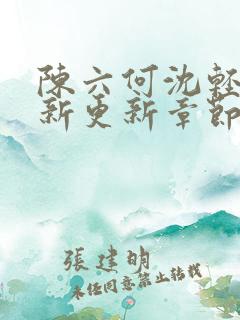 陳六何沈輕
新更新章節
張建明
未任同意禁止轉載